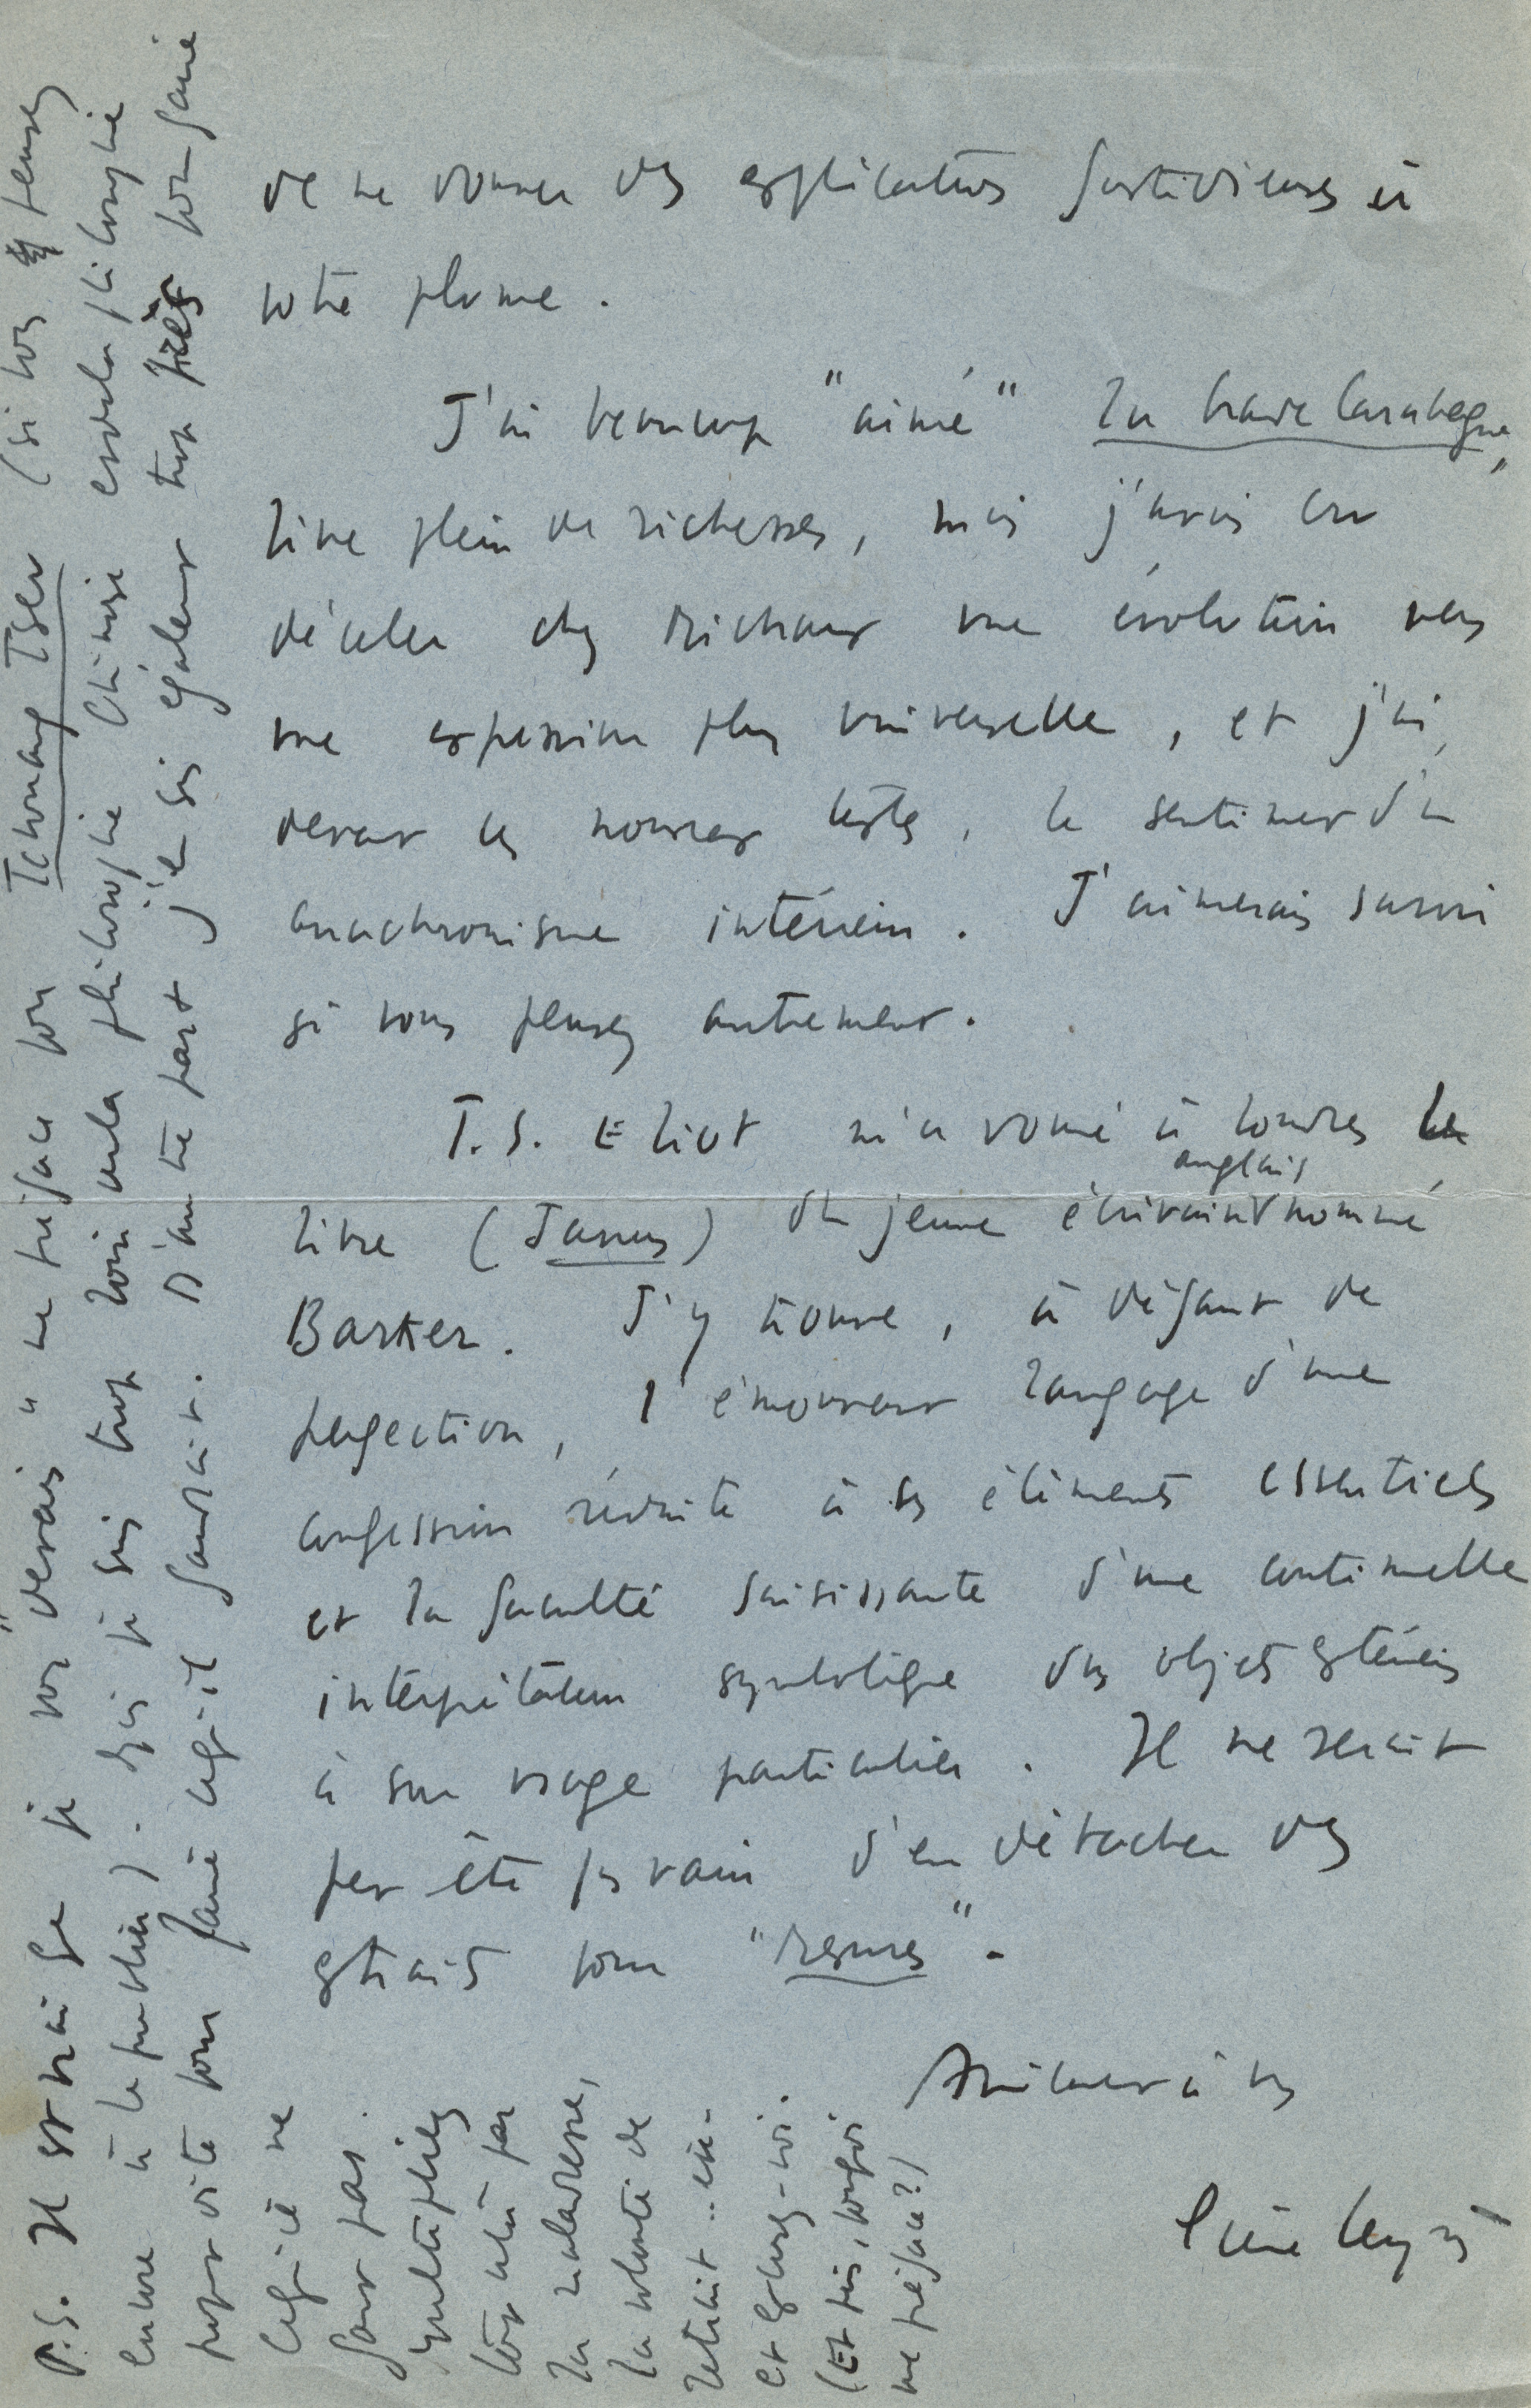 de ne donner des explications fastidieuses à
votre plume.
J'ai beaucoup "aimé" La Grande Carabagne,
livre plein de richesses, mais j'avais cru
déceler chez Michaux une évolution vers
une expression plus universelle, et j'ai,
devant ces nouveaux textes, le sentiment d'un
anachronisme intérieur. J'aimerais savoir
si vous pensez autrement.
T.S. Eliot m'a donné à Londres le
livre (Janus) d'un jeune écrivain anglais nommé
Barker. J'y trouve, à défaut de
perfection, l'émouvant langage d'une
confession réduite à ses éléments essentiels
et la faculté saisissante d'une continuelle
interprétation symbolique des objets extérieurs
à son usage particulier. Il ne serait
peut être pas vain d'en détacher des
extraits pour "Mesures".
Amicalement à vous
P.S. Il est vrai que je vous "devais" une préface pour Tchouang Tseu (si vous pensez
encore à le publier). Mais je suis trop loin de la philosophie chinoise et de la philosophie
pour vite vous faire ce qu'il faudrait. D'autre part j'en suis également trop près pour faire
ce qu'il ne
faut pas.
Multipliez
tout cela par
la maladresse,
la volonté de
retrait
et excusez-moi.
(Et puis, pourquoi
une préface?)